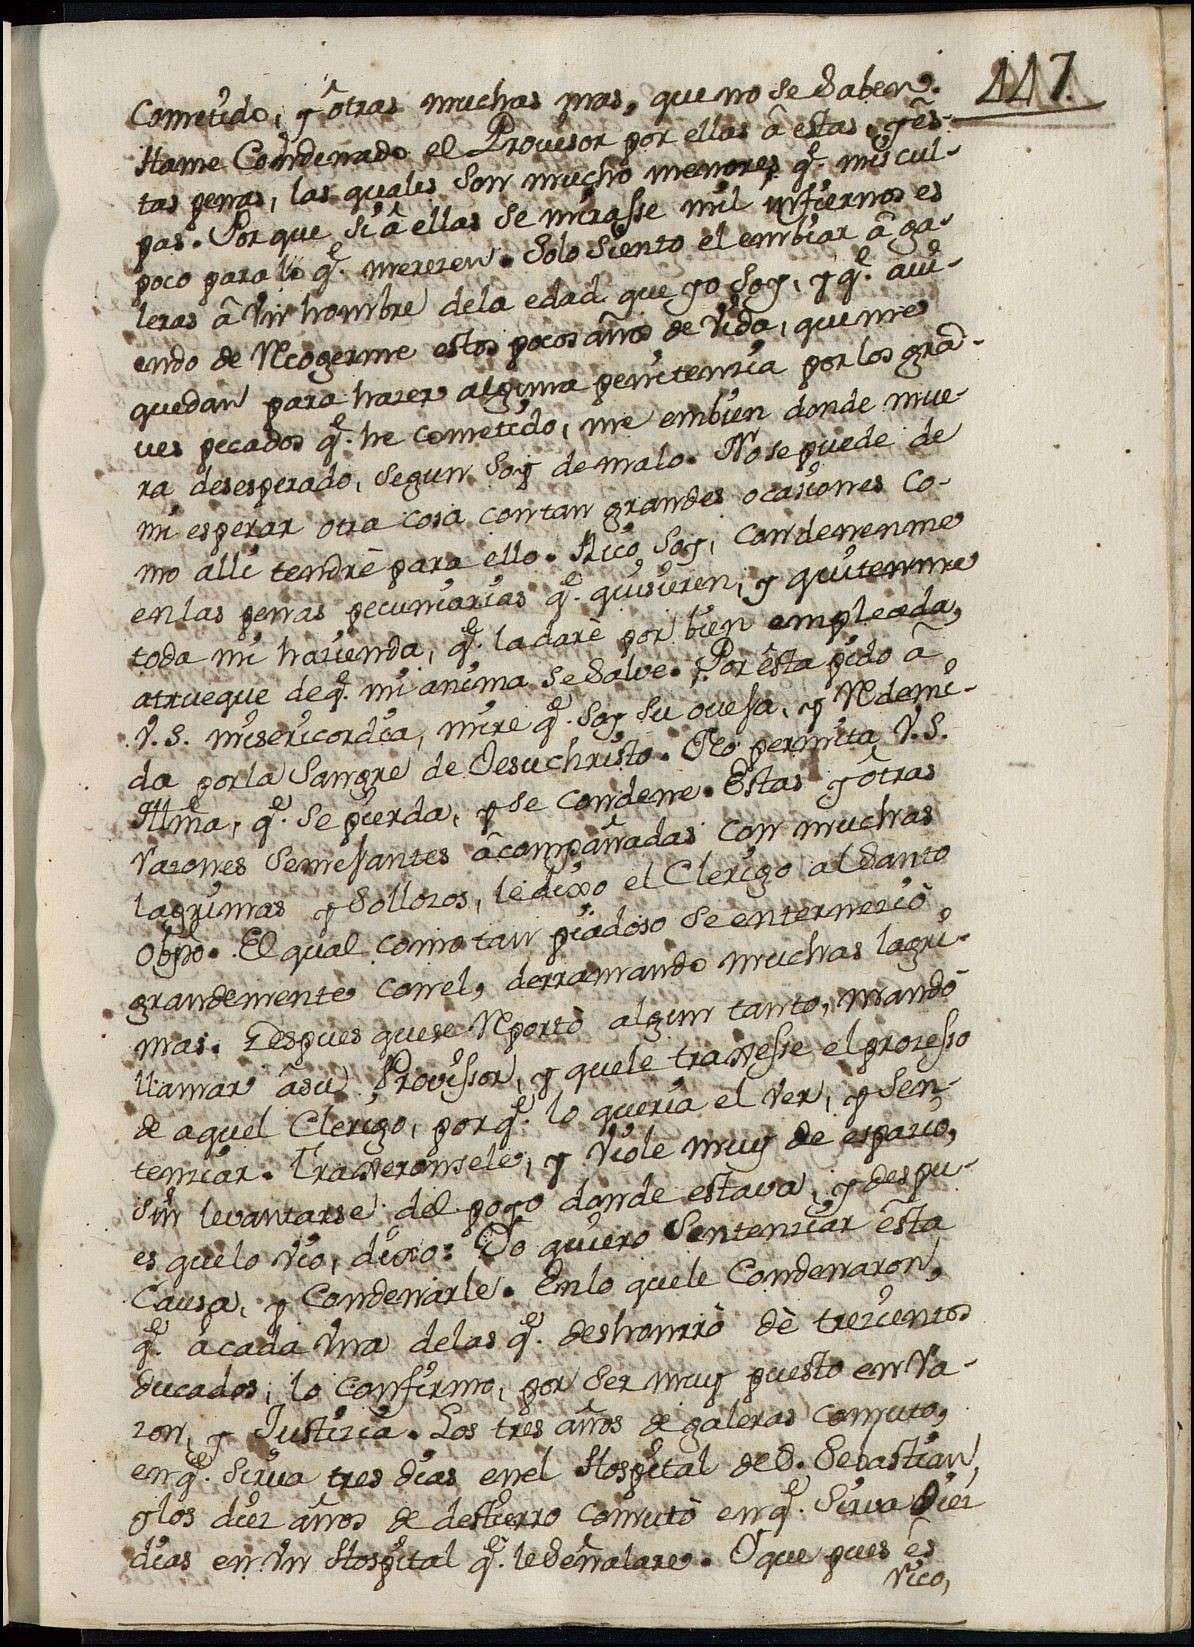 117.
Cometido, y otras muchas mas, que no se saben.
Hame Condenado el Provisor por ellas â estas, y es-
tas penas, las quales son mucho menores q.e mis cul-
pas. Por que si â ellas se mirasse mil ynfiernos es
poco para lo q.e merezen. Solo siento el embiar â ga-
leras â Vn hombre dela edad que yo soy, y q.e avi-
endo de Recogerme estos pocos años de Vida, que me
quedan para hazer alguna penitenzia por los gra-
ves pecados q.e he cometido, me embien donde mue-
ra desesperado, segun soy de malo. No se puede de
mi esperar otra cosa con tan grandes ocasiones co-
mo alli tendrè para ello. Rico soy, condenenme
en las penas pecuniarias q.e quisieren, y quitenme
toda mi hazienda, q.e la darè por bien empleada,
atrueque de q.e mi anima se salve. Por esta pido â
V.S. misericordia, mire q.e soy su oveja, y Redemi-
da por la sangre de Jesuchristo. No permita V.S.
Yllma, q.e se pierda, y se condene. Estas y otras
razones semejantes âcompañadas con muchas
lagrimas y sollozos, le dixo el Clerigo al Santo
Obpo. El qual como tan piadoso se enternezió
grandemente con el, derramando muchas lagri-
mas. Despues que se Reportò algun tanto, mandò
llamar âsu Provissor, y que le traxesse el prozesso
de aquel Clerigo, porq.e lo queria el ver, y sen-
tenziar. Traxeronsele, y Viole muy de espazio,
sin levantarse del poyo donde estava, y despu-
es que lo vio, dixo: Yo quiero sentenziar esta
Causa, y Condenarle. En lo que le Condenaron,
q.e à cada Vna delas q.e deshonrrò dè trezientos
ducados, lo confirmo, por ser muy puesto en Ra-
zon, y Justizia. Los tres años de galeras comuto,
en q.e sirva tres dias en el Hospital de S. Sebastian,
y los diez años de destierro comutò en q.e sirva diez
dias en Vn Hospital q.e le señalare. Y que pues es
rico,